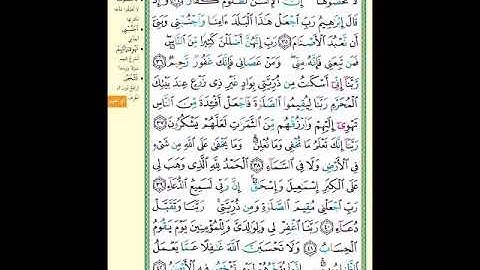 لَا تُحْصُوهَا إِنَّ الْإِنسَٰنَ لَظَلُومٌ كَفَّارٌ ٣٤ وَإِذْ
قَالَ إِبْرَٰهِيمُ رَبِّ اجْعَلْ هَٰذَا الْبَلَدَ ءَامِنًا وَاجْنُبْنِي وَبَنِيَّ
أَن نَّعْبُدَ الْأَصْنَامَ ٣٥ رَبِّ إِنَّهُنَّ أَضْلَلْنَ كَثِيرًا مِّنَ النَّاسِ
فَمَن تَبِعَنِي فَإِنَّهُ مِنِّي وَمَنْ عَصَانِي فَإِنَّكَ غَفُورٌ رَّحِيمٌ ٣٦
رَّبَّنَا إِنِّي أَسْكَنتُ مِن ذُرِّيَّتِي بِوَادٍ غَيْرِ ذِي زَرْعٍ عِندَ بَيْتِكَ
الْمُحَرَّمِ رَبَّنَا لِيُقِيمُوا الصَّلَوٰةَ فَاجْعَلْ أَفْـِٔدَةً مِّنَ النَّاسِ
تَهْوِي إِلَيْهِمْ وَارْزُقْهُم مِّنَ الثَّمَرَٰتِ لَعَلَّهُمْ يَشْكُرُونَ ٣٧
رَبَّنَا إِنَّكَ تَعْلَمُ مَا نُخْفِي وَمَا نُعْلِنُ وَمَا يَخْفَىٰ عَلَى اللَّهِ مِن شَيْءٍ
فِي الْأَرْضِ وَلَا فِي السَّمَاءِ ٣٨ الْحَمْدُ لِلَّهِ الَّذِي وَهَبَ لِي
عَلَى الْكِبَرِ إِسْمَٰعِيلَ وَإِسْحَٰقَ إِنَّ رَبِّي لَسَمِيعُ الدُّعَاءِ ٣٩
رَبِّ اجْعَلْنِي مُقِيمَ الصَّلَوٰةِ وَمِن ذُرِّيَّتِي رَبَّنَا وَتَقَبَّلْ
دُعَاءِ ٤٠ رَبَّنَا اغْفِرْ لِي وَلِوَٰلِدَيَّ وَلِلْمُؤْمِنِينَ يَوْمَ يَقُومُ
الْحِسَابُ ٤١ وَلَا تَحْسَبَنَّ اللَّهَ غَٰفِلًا عَمَّا يَعْمَلُ